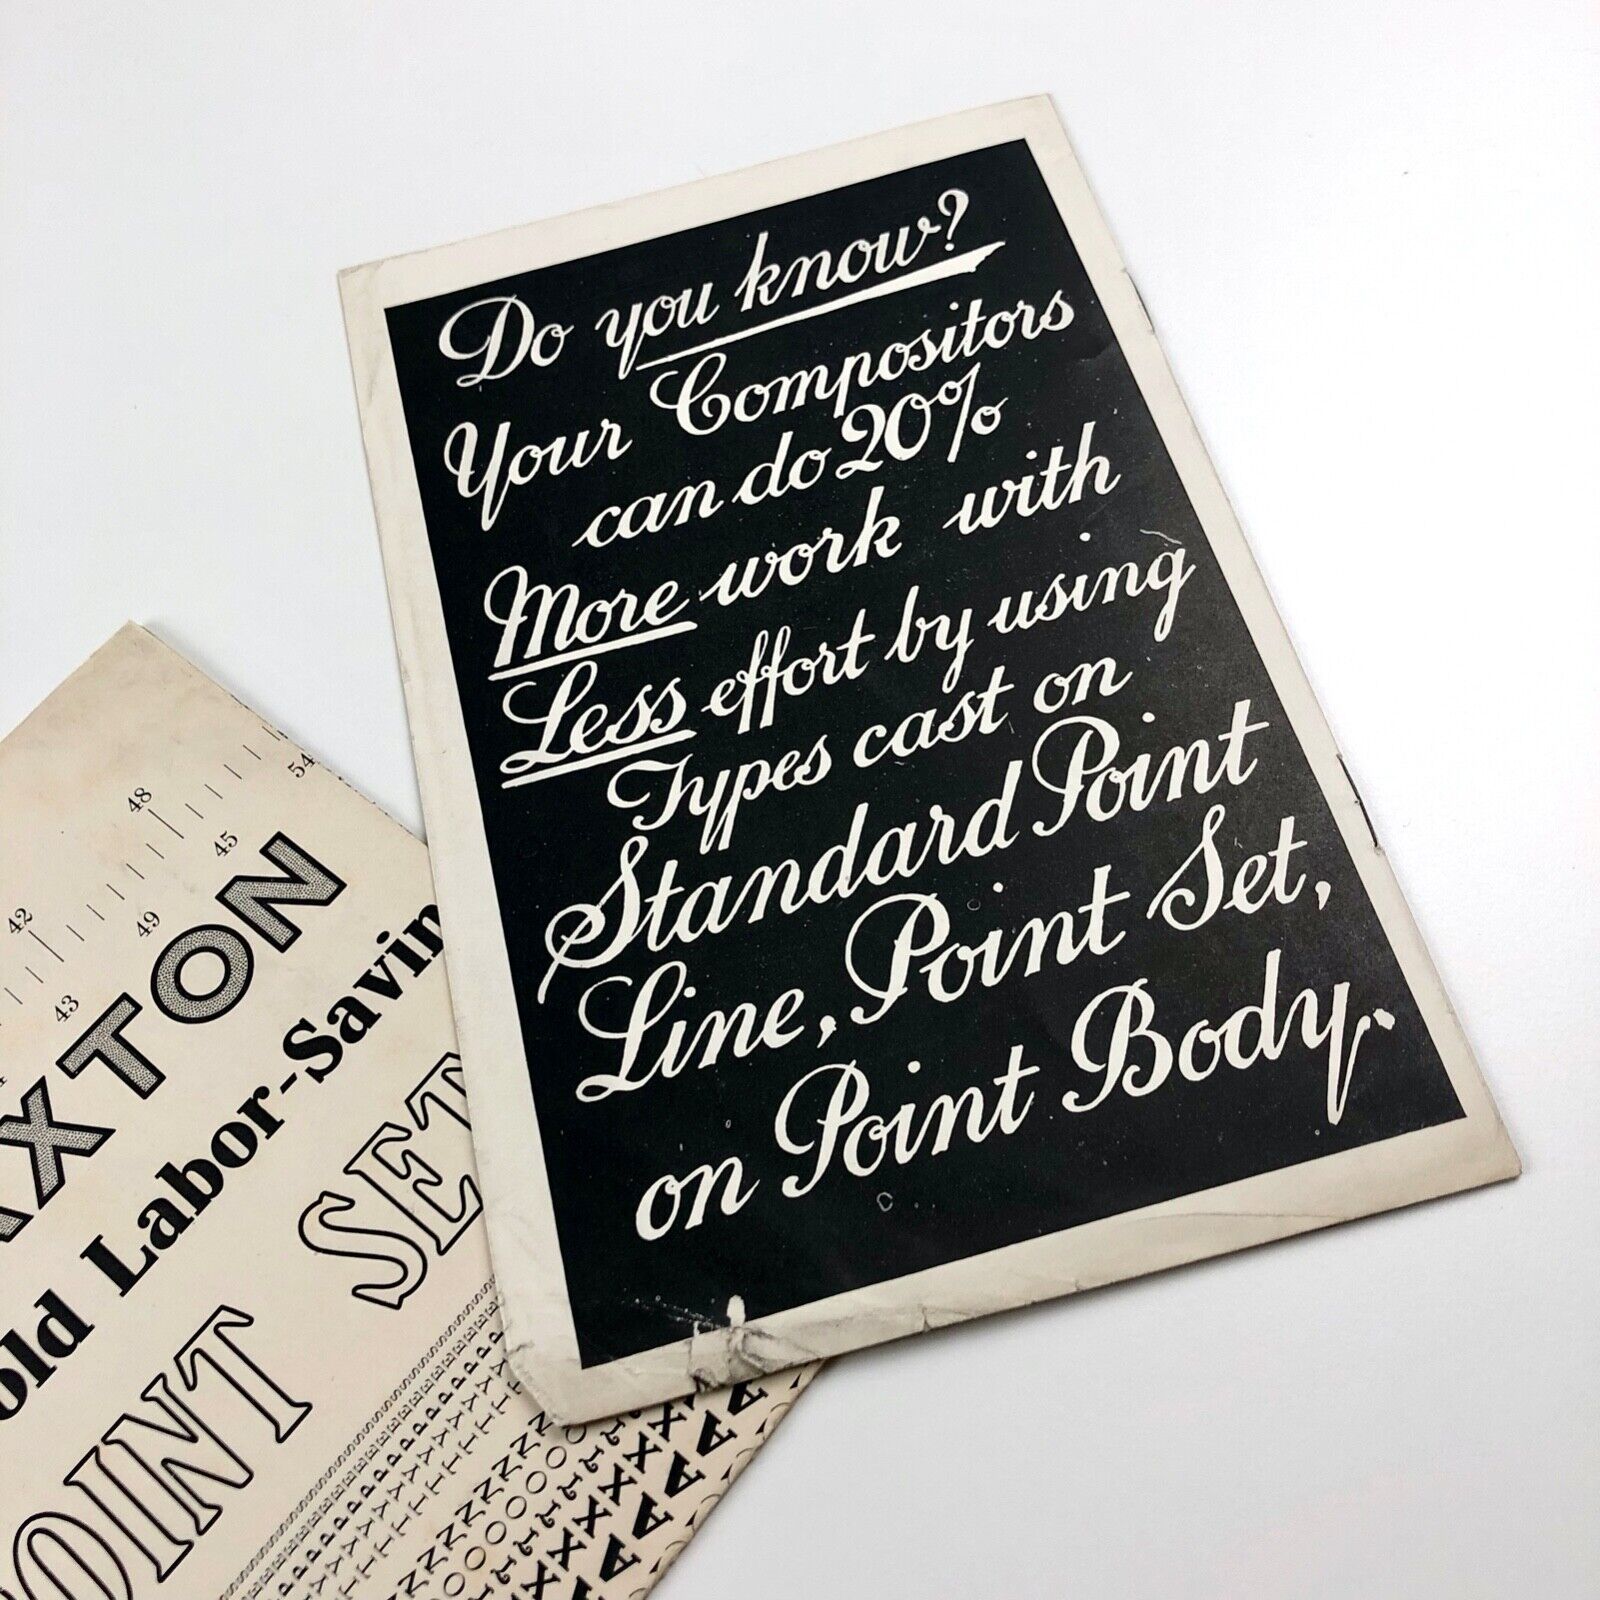 Do you know?
Your Compositors
can do 20%
More work with
Less effort by using
Types cast on
Standard Point
Line, Point Set,
on Point Body.
42 48 54
43 49 45
AXTON
old Labor-Savin
POINT SET